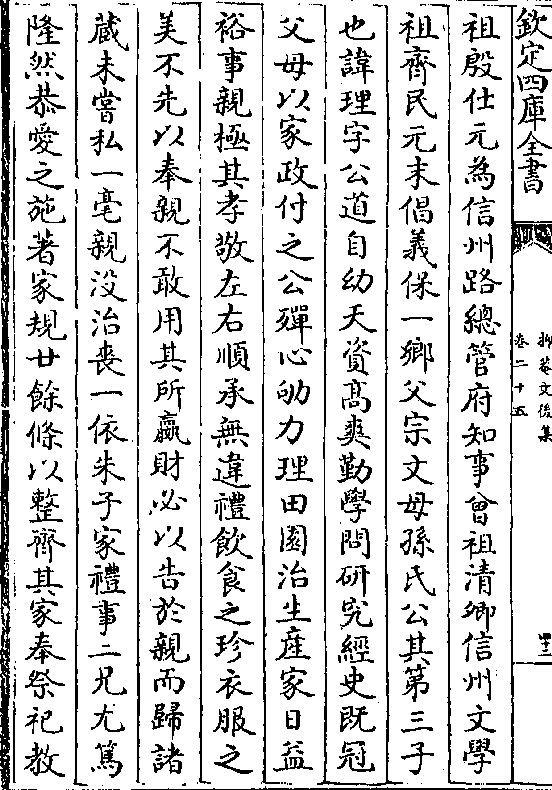 欽定四庫全書
抑菴文後集
卷二十五
祖殷仕元為信州路總管府知事曾祖清卿信州文學
祖齊民元末倡義保一鄉父宗文母孫氏公其第三子
也諱理字公道自幼天資髙爽勤學問研究經史既冠
父母以家政付之公殫心劬力理田園治生産家日益
裕事親極其孝敬左右順承無違禮飲食之珍衣服之
美不先以奉親不敢用其所贏財必以告於親而歸諸
蔵未嘗私一毫親没治喪一依朱子家禮事二兄尤篤
隆然恭愛之施著家規廿餘條以整齊其家奉祭祀教